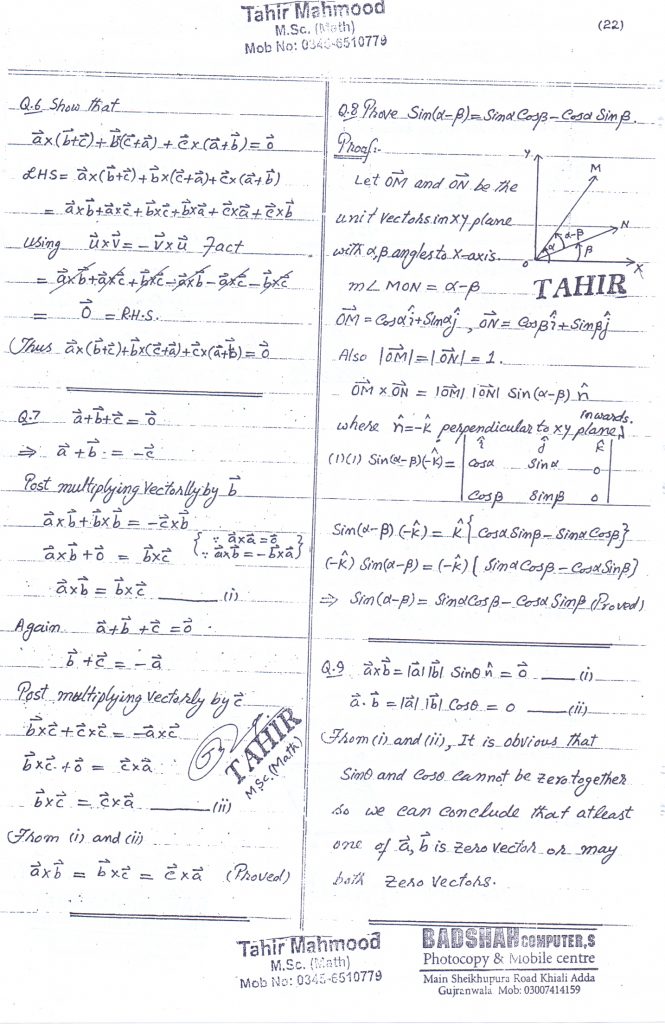 Tahir Mahmood
M.Sc. (Math)
Mob No: 0345-6510779
(22)
Q.6 Show that
a⃗×(b⃗+c⃗)+b⃗(c⃗+a⃗)+c⃗×(a⃗+b⃗)=0⃗
LHS= a⃗×(b⃗+c⃗)+b⃗×(c⃗+a⃗)+c⃗×(a⃗+b⃗)
= a⃗×b⃗+a⃗×c⃗+b⃗×c⃗+b⃗×a⃗+c⃗×a⃗+c⃗×b⃗
Using u⃗×v⃗=-v⃗×u⃗ Fact
= a⃗×b⃗+a⃗×c⃗+b⃗×c⃗-a⃗×b⃗-a⃗×c⃗-b⃗×c⃗
= 0⃗ = R.H.S.
Thus a⃗×(b⃗+c⃗)+b⃗×(c⃗+a⃗)+c⃗×(a⃗+b⃗)=0⃗
Q.7 a⃗+b⃗+c⃗=0⃗
⇒ a⃗+b⃗ = -c⃗
Post multiplying Vectorlly by b⃗
a⃗×b⃗+b⃗×b⃗ = -c⃗×b⃗
a⃗×b⃗+0 = b⃗×c⃗ {∵ a⃗×a⃗=0 ∵ a⃗×b⃗=-b⃗×a⃗}
a⃗×b⃗ = b⃗×c⃗ (i)
Again a⃗+b⃗+c⃗=0⃗
b⃗+c⃗ = -a⃗
Post multiplying vectorly by c⃗
b⃗×c⃗+c⃗×c⃗ = -a⃗×c⃗
b⃗×c⃗+0 = c⃗×a⃗
b⃗×c⃗ = c⃗×a⃗ (ii)
From (i) and (ii)
a⃗×b⃗ = b⃗×c⃗ = c⃗×a⃗ (Proved)
TAHIR
M.Sc.(Math)
Q.8 Prove Sin(α-β)=SinαCosβ-CosαSinβ.
Proof:-
Let OM⃗ and ON⃗ be the
unit vectors in xy plane
with α,β angles to X-axis.
m∠MON = α-β
Y
M
N
α-β
α
β
O
X
TAHIR
OM⃗=Cosαî+Sinαĵ, ON⃗=Cosβî+Sinβĵ
Also |OM⃗|=|ON⃗|=1.
OM⃗×ON⃗ = |OM⃗||ON⃗| Sin(α-β) n̂
where n̂=-k̂ perpendicular to xy plane inwards.
î ĵ k̂
(1)(1) Sin(α-β)(-k̂)= | Cosα Sinα 0 |
Cosβ Sinβ 0
Sin(α-β)(-k̂) = k̂{CosαSinβ-SinαCosβ}
(-k̂) Sin(α-β)=(-k̂){SinαCosβ-CosαSinβ}
⇒ Sin(α-β)= SinαCosβ-CosαSinβ (Proved)
Q.9 a⃗×b⃗=|a⃗||b⃗| Sinθ n̂ = 0⃗ (i)
a⃗.b⃗=|a⃗||b⃗| Cosθ = 0 (ii)
From (i) and (ii), It is obvious that
Sinθ and Cosθ cannot be zero together
so we can conclude that atleast
one of a⃗, b⃗ is zero vector or may
both zero vectors.
Tahir Mahmood
M.Sc. (Math)
Mob No: 0345-6510779
BADSHAH COMPUTER,S
Photocopy & Mobile centre
Main Sheikhupura Road Khiali Adda
Gujranwala Mob: 03007414159